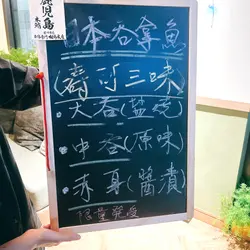 鹿児島
日本吞拿魚
(壽司三味)
·大吞(鹽燒)
·中吞(原味)
·赤身(醬漬)
限量發售